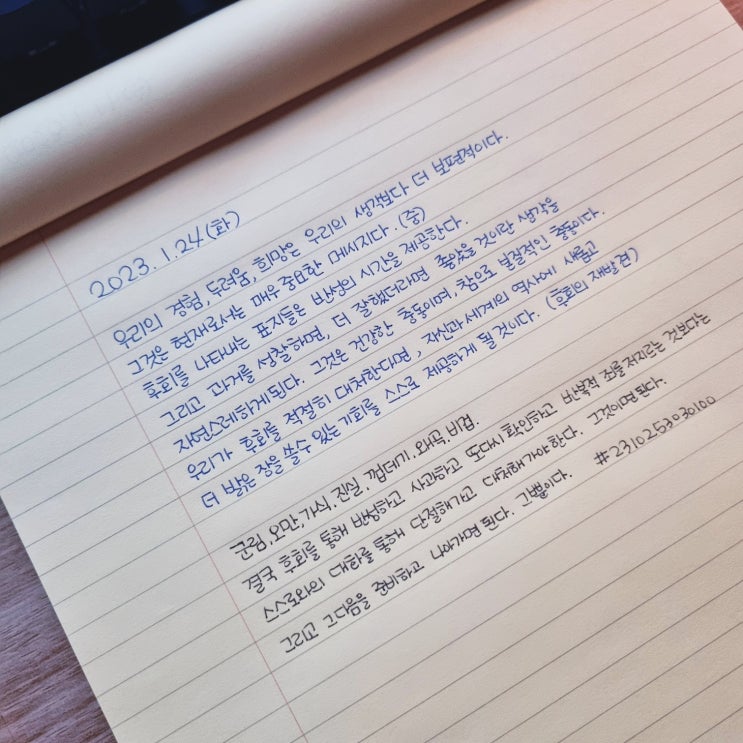 2023. 1. 24 (화)
우리의 경험, 두려움, 희망은 우리의 생각보다 더 보편적이다.
그것은 현재로서는 매우 중요한 메시지다. (중)
후회를 나타내는 표지들은 반성의 시간을 제공한다.
그리고 과거를 성찰하면, 더 잘했더라면 좋았을 것이란 생각을
자연스레하게 된다. 그것은 건강한 충동이며, 참으로 본질적인 충동이다.
우리가 후회를 적절히 대처한다면, 자신과 세계의 역사에 새롭고
더 밝은 장을 쓸 수 있는 기회를 스스로 제공하게 될 것이다. (후회의 재발견)
군림, 오만, 가식. 진실. 껍데기. 왜곡. 비겁.
결국 후회를 통해 반성하고 사과하고 또다시 확인하고 반복적 죄를 저지르는 것보다는
스스로와의 대화를 통해 단절해가고 대처해가야 한다. 그것이면 된다.
그리고 그 다음을 준비하고 나아가면 된다. 그뿐이다. #2310253030100